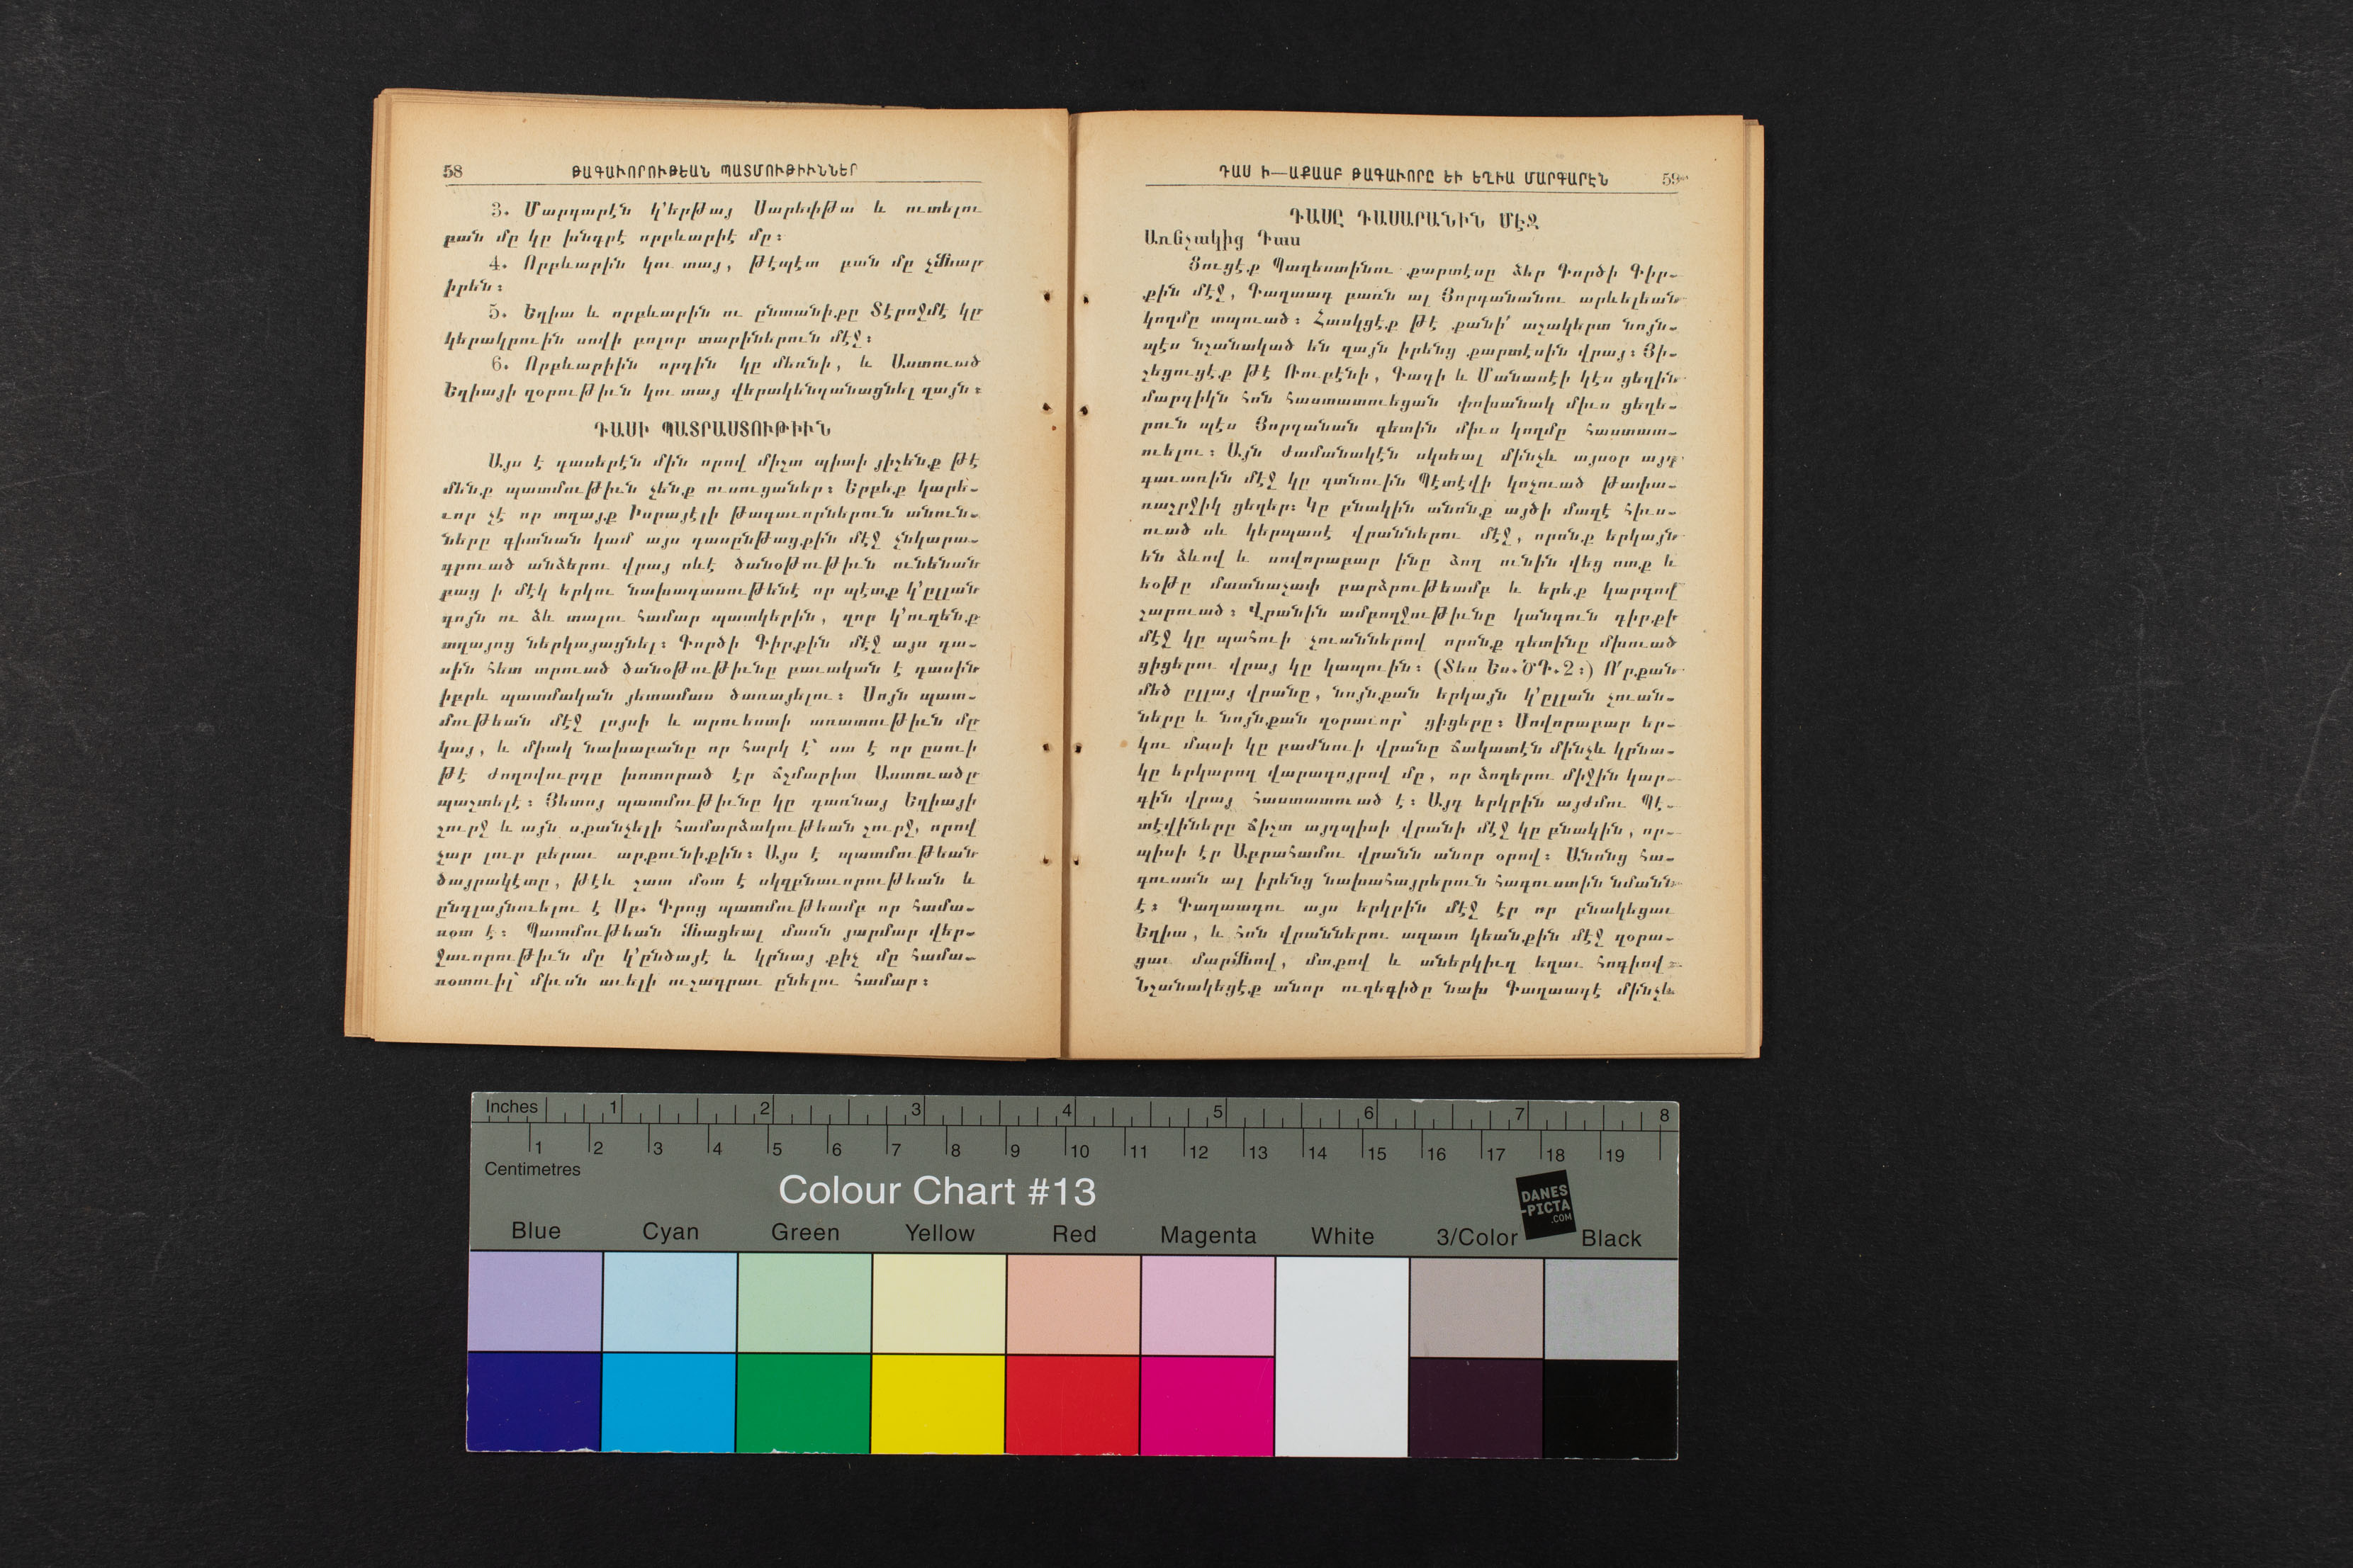 58 ԹԱԳԱՒՈՐՈՒԹԵԱՆ ՊԱՏՄՈՒԹԻՒՆՆԵՐ
3. Մարգարէն կ՚երթայ Սարեփթա և ուտելու
բան մը կը խնդրէ որբևարիէ մը։
4. Որբևարին կու տայ, թէպէտ բան մը չմնար
իրեն։
5. Եղիա և որբևարին ու ընտանիքը Տէրոջմէ կը
կերակրուին սովի բոլոր տարիներուն մէջ։
6. Որբևարիին որդին կը մեռնի, և Աստուած
Եղիայի զօրութիւն կու տայ վերակենդանացնել զայն։
ԴԱՍԻ ՊԱՏՐԱՍՏՈՒԹԻՒՆ
Այս է դասերէն մին որով միշտ պիտի յիշենք թէ
մենք պատմութիւն չենք ուսուցաներ։ Երբեք կարե-
ւոր չէ որ տղայք Իսրայէլի թագաւորներուն անուն-
ները գիտնան կամ այս դասընթացքին մէջ չնկարա-
գրուած անձերու վրայ ոևէ ծանօթութիւն ունենան
բաց ի մէկ երկու նախադասութենէ որ պէտք կ՚ըլլան
գոյն ու ձև տալու համար պատկերին, զոր կ՚ուզենք
տղայոց ներկայացնել։ Գործի Գիրքին մէջ այս դա-
սին հետ տրուած ծանօթութիւնը բաւական է դասին
իբրև պատմական յետամաս ծառայելու։ Սոյն պատ-
մութեան մէջ լոյսի և արուեստի առատութիւն մը
կայ, և միակ նախաբանը որ հարկ է՝ սա է որ ըսուի
թէ ժողովուրդը խոտորած էր ճշմարիտ Աստուածը
պաշտելէ։ Յետոյ պատմութիւնը կը դառնայ Եղիայի
շուրջ և այն սքանչելի համարձակութեան շուրջ, որով
չար լուր բերաւ արքունիքին։ Այս է պատմութեան
ծայրակէտը, թէև շատ մօտ է սկզբնաւորութեան և
ընդլայնուելու է Սբ. Գրոց պատմութեամբ որ համա-
ռօտ է։ Պատմութեան մնացեալ մասն յարմար վեր-
ջաւորութիւն մը կ՚ընծայէ և կրնայ քիչ մը համա-
ռօտուիլ՝ միւսն աւելի ուշադրաւ ընելու համար։
ԴԱՍ Ի—ԱՔԱԱԲ ԹԱԳԱՒՈՐԸ ԵՒ ԵՂԻԱ ՄԱՐԳԱՐԷՆ 59
ԴԱՍԸ ԴԱՍԱՐԱՆԻՆ ՄԷՋ
Առնչակից Դաս
Ցուցէք Պաղեստինու քարտէսը ձեր Գործի Գիր-
քին մէջ, Գաղաադ բառն ալ Յորդանանու արևելեան
կողմը տպուած։ Հասկցէք թէ քանի՛ աշակերտ նոյն-
պէս նշանակած են զայն իրենց քարտէսին վրայ։ Յի-
շեցուցէք թէ Ռուբէնի, Գադի և Մանասէի կէս ցեղին
մարդիկն հոն հաստատուեցան փոխանակ միւս ցեղե-
րուն պէս Յորդանան գետին միւս կողմը հաստատ-
ուելու։ Այն ժամանակէն սկսեալ մինչև այսօր այդ
գաւառին մէջ կը գտնուին Պէտէվի կոչուած թափա-
ռաշրջիկ ցեղեր։ Կը բնակին անոնք այծի մազէ հիւս-
ուած սև կերպասէ վրաններու մէջ, որոնք երկայն
են ձևով և սովորաբար ինը ձող ունին վեց ոտք և
եօթը մատնաչափ բարձրութեամբ և երեք կարգով
շարուած։ Վրանին ամբողջութիւնը կանգուն դիրքի
մէջ կը պահուի չուաններով որոնք գետինը մխուած
ցիցերու վրայ կը կապուին։ (Տես Ես. ԾԴ. 2։) Ո՛րքան
մեծ ըլլայ վրանը, նոյնքան երկայն կ՚ըլլան չուան-
ները և նոյնքան զօրաւոր՝ ցիցերը։ Սովորաբար եր-
կու մասի կը բաժնուի վրանը ճակատէն մինչև կռնա-
կը երկարող վարագոյրով մը, որ ձողերու միջին կար-
գին վրայ հաստատուած է։ Այդ երկրին այժմու Պէ-
տէվիները ճիշտ այդպիսի վրանի մէջ կը բնակին, որ-
պիսի էր Աբրահամու վրանն անոր օրով։ Անոնց հա-
գուստն ալ իրենց նախահայրերուն հագուստին նմանն
է։ Գաղաադու այս երկրին մէջ էր որ բնակեցաւ
Եղիա, և հոն վրաններու ազատ կեանքին մէջ զօրա-
ցաւ մարմնով, մտքով և աներկիւղ եղաւ հոգիով։
Նշանակեցէք անոր ուղեգիծը նախ Գաղաադէ մինչև
Inches 1 2 3 4 5 6 7 8
1 2 3 4 5 6 7 8 9 10 11 12 13 14 15 16 17 18 19
Centimetres
Colour Chart #13
DANES
-PICTA
.COM
Blue Cyan Green Yellow Red Magenta White 3/Color Black